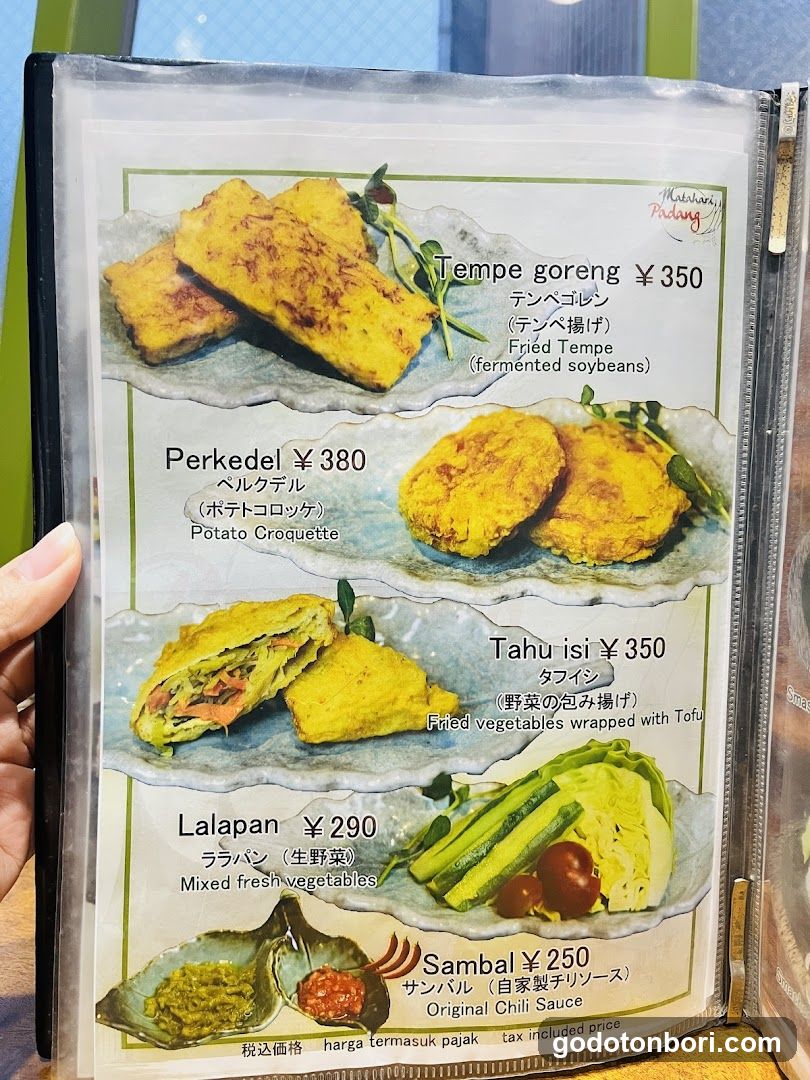 Matahari
Padang
Tempe goreng ¥350
テンペゴレン
(テンペ揚げ)
Fried Tempe
(fermented soybeans)
Perkedel ¥380
ペルクデル
(ポテトコロッケ)
Potato Croquette
Tahu isi ¥350
タフイシ
(野菜の包み揚げ)
Fried vegetables wrapped with Tofu
Lalapan ¥290
ララパン (生野菜)
Mixed fresh vegetables
Sambal ¥250
サンバル (自家製チリソース)
Original Chili Sauce
税込価格 harga termasuk pajak tax included price
godotonbori.com